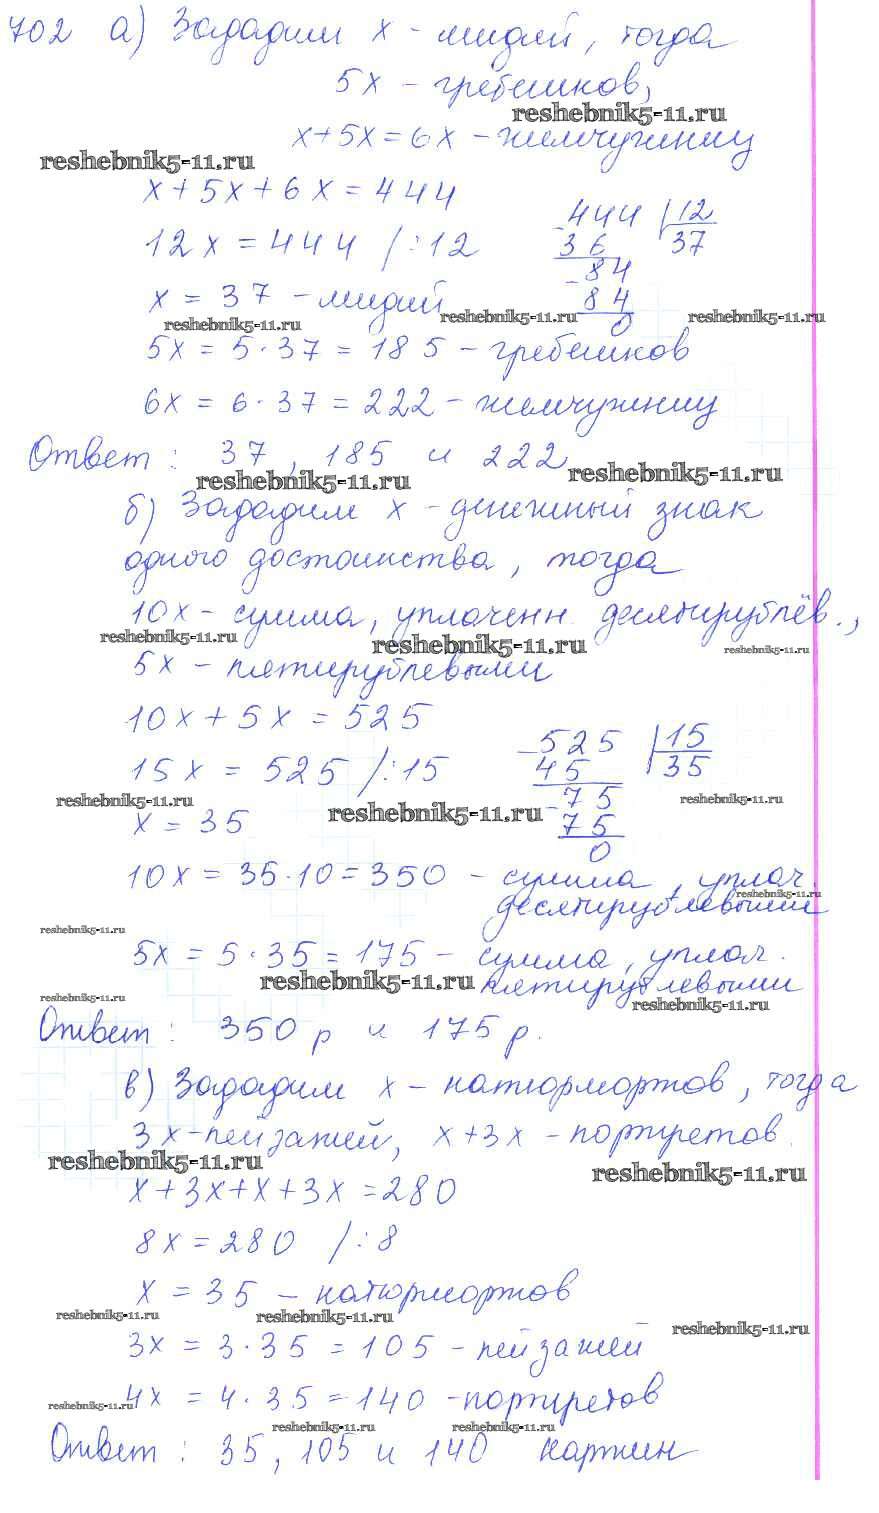 702 а) Зададим x - мидий, тогда
5x - гребешков,
reshebnik5-11.ru
x+5x=6x - жемчужниц
reshebnik5-11.ru
x+5x+6x=444
444 | 12
12x = 444 /:12
- 36 37
- 84
x = 37 - мидий
84
0
reshebnik5-11.ru reshebnik5-11.ru reshebnik5-11.ru
5x = 5·37 = 185 - гребешков
6x = 6·37 = 222 - жемчужниц
Ответ: 37, 185 и 222
reshebnik5-11.ru reshebnik5-11.ru
б) Зададим x - денежный знак
одного достоинства, тогда
10x - сумма, уплаченн. десятирублёв.,
reshebnik5-11.ru reshebnik5-11.ru reshebnik5-11.ru
5x - пятирублевыми
10x + 5x = 525
- 525 | 15
15x = 525 /:15
45 35
reshebnik5-11.ru reshebnik5-11.ru reshebnik5-11.ru
- 75
x = 35
75
0
10x = 35·10 = 350 - сумма, уплач.
reshebnik5-11.ru
десятирублевыми
reshebnik5-11.ru
5x = 5·35 = 175 - сумма, уплач.
reshebnik5-11.ru пятирублевыми
reshebnik5-11.ru reshebnik5-11.ru
Ответ: 350 р и 175 р.
в) Зададим x - натюрмортов, тогда
3x - пейзажей, x+3x - портретов.
reshebnik5-11.ru reshebnik5-11.ru
x+3x+x+3x =280
8x = 280 /:8
x = 35 - натюрмортов
reshebnik5-11.ru reshebnik5-11.ru reshebnik5-11.ru
3x = 3·35 = 105 - пейзажей
4x = 4·35 = 140 - портретов
reshebnik5-11.ru
reshebnik5-11.ru reshebnik5-11.ru
Ответ: 35, 105 и 140 картин